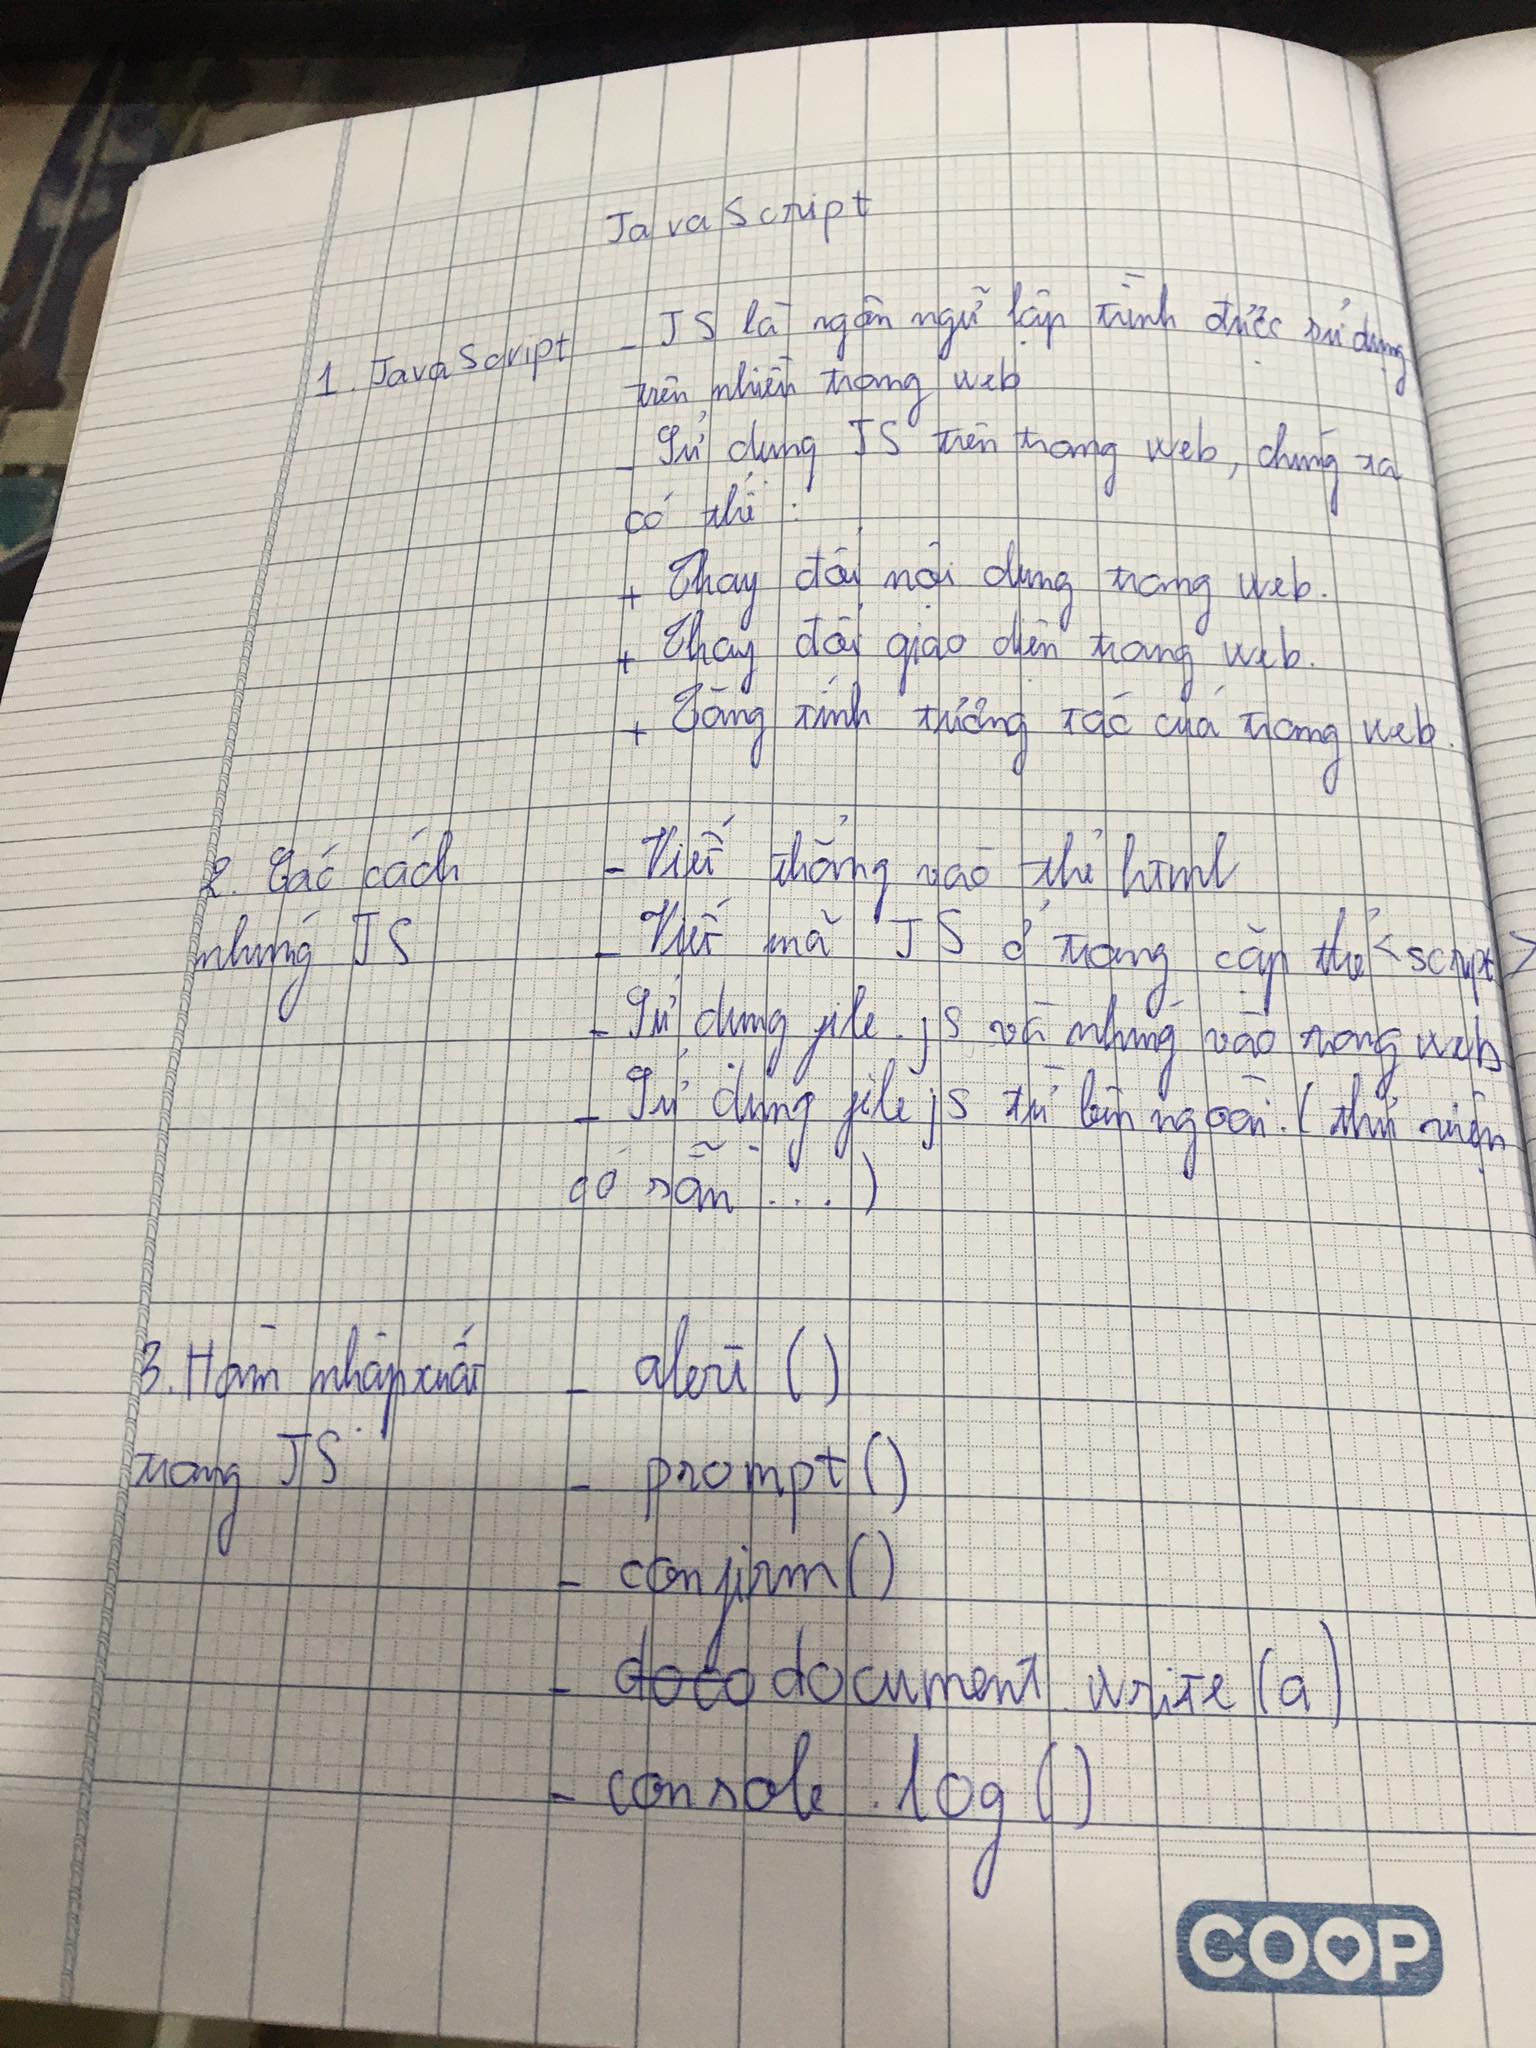 JavaScript
1. JavaScript - JS là ngôn ngữ lập trình được sử dụng
trên nhiều trang web
- Sử dụng JS trên trang web, chúng ta
có thể :
+ Thay đổi nội dung trang web.
+ Thay đổi giao diện trang web.
+ Tăng tính tương tác của trang web.
2. Các cách - Viết thẳng vào thẻ html
nhúng JS - Viết mã JS ở trong cặp thẻ <script>
- Sử dụng file .js và nhúng vào trang web
- Sử dụng file js từ bên ngoài. (thư viện
có sẵn ...)
3. Hàm nhập xuất - alert ()
trong JS - prompt ()
- confirm ()
- doco document.write (a)
- console .log ()
COOP